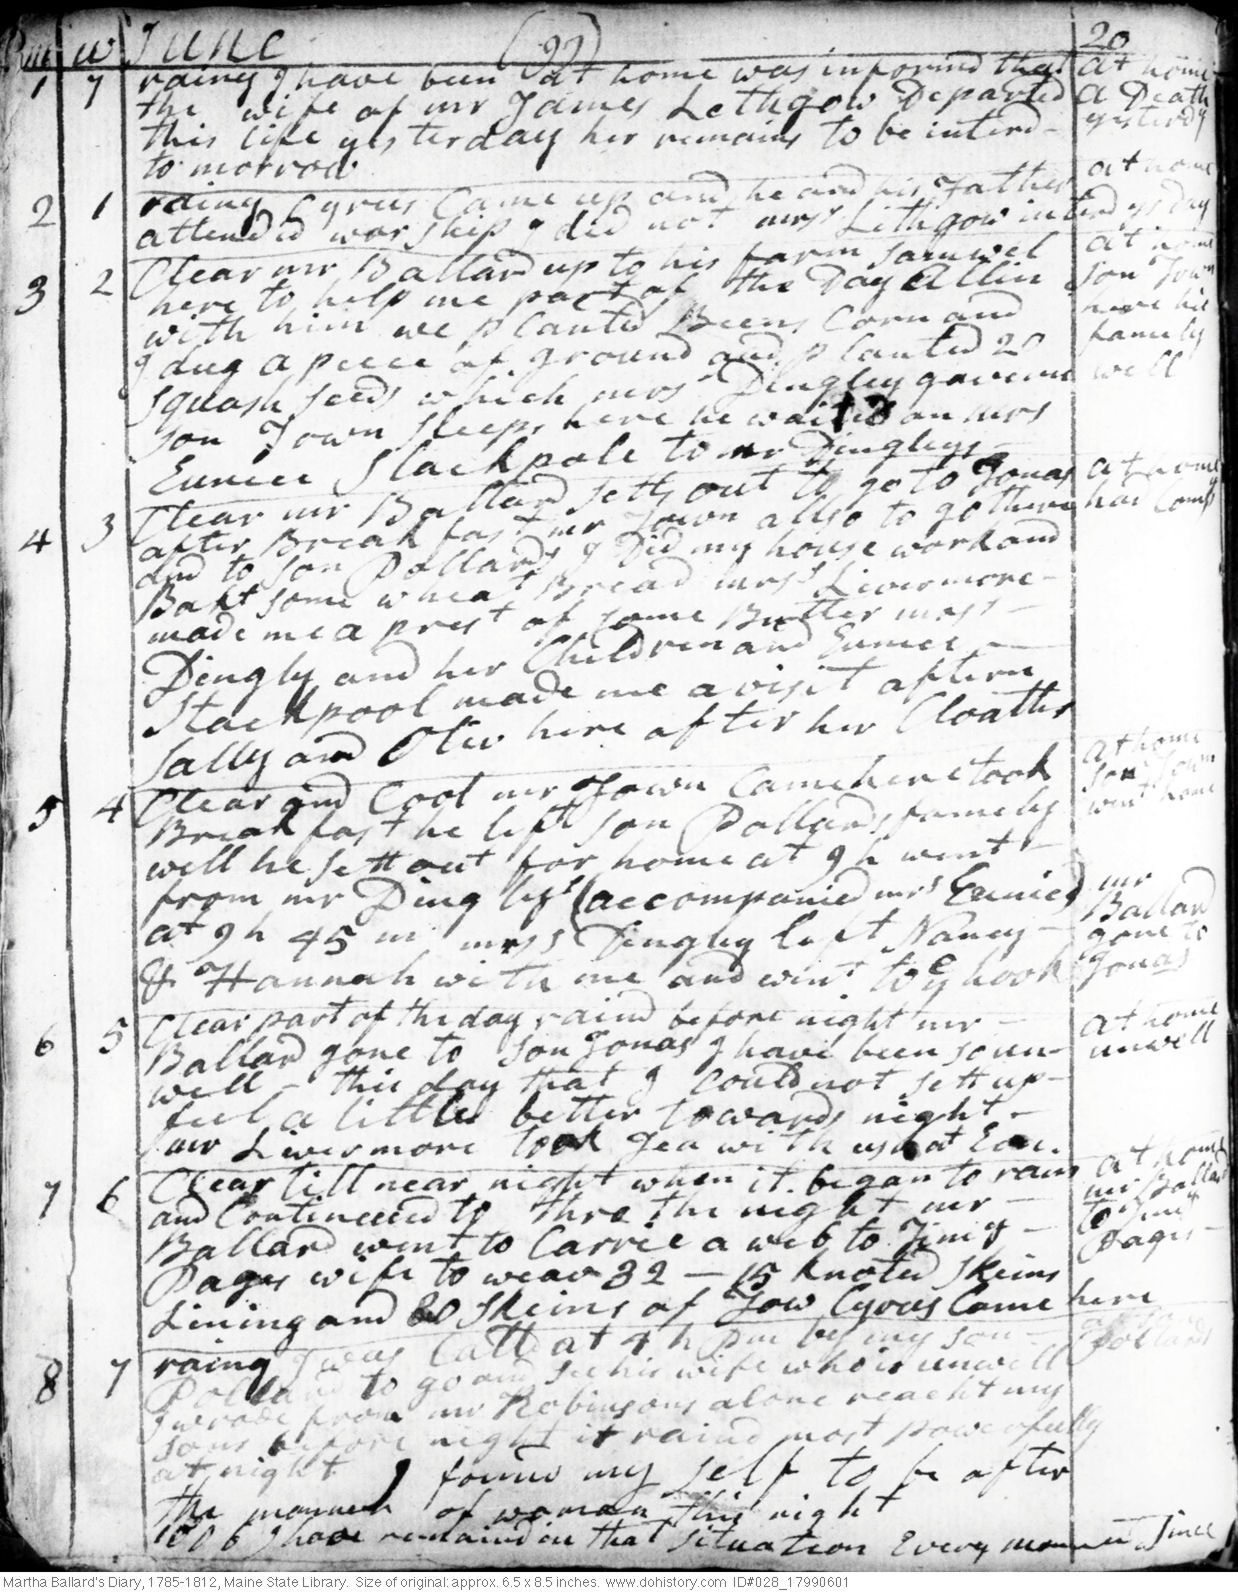 w June (22) 20
1 7 rainy I have been at home was informd that at home
the wife of mr James Lethgow Departed a Death
this life yesterday her remains to be interd - yesterdy
to morrow
2 1 rainy Cyrus Came up and he and his Father at home
attended worship I did not mrss Lithgow interd ysday
3 2 Clear mr Ballard up to his farm Samuel at home
here to help me part of the Day Allin son Town
with him we planted Beens Corn and here his
I dug a piece of ground and planted 20 family
squash seeds which mrs Dingley gave me well
son Town sleeps here he waited on mrs
Eunice Stackpole to mr Dingleys -
4 3 Clear mr Ballard setts out to go to Jonas at home
after Breakfast mr Town allso to go there has Comp
and to son Pollards I Did my house work and
Bakt some wheat Bread mrss Livermore -
made me a prest of some Butter mrss -
Dingly and her Children and Eunice -
Stackpool made me a visit aftern
Sally and Oliv here after her Cloaths
5 4 Clear and Cool mr Town Came here took at home
Breakfast he left son Pollards family son Town
well he sett out for home at 9 h went - went home
from mr Dinglys (accompanied mrs Eunice)
at 9 h 45 m mrss Dingley left Nancy -
& Hannah with me and wint to ye hook
mr
Ballard
gone to
Jonas
6 5 Clear part of the day raind before night mr - at home
Ballard gone to son Jonas I have been so un- unwell
well - this day that I Could not sett up -
feel a little better towards night -
mr Livermore took Tea with us at Eve.
7 6 Clear till near night when it began to rain at home
and Continued to thro the night mr - mr Ballard
Ballard went to Carrie a web to Jimy - to Jimy
Pages wife to weav 32 - 15 knoted skeins Pages -
Lining and 20 skeins of Tow Cyrus Came here
8 7 rainy I was Calld at 4 h pm by my son - Pollards
Pollard to go and see his wife who is unwell
I wrode from mr Robinsons alone reacht my
sons before night it raind most powerfully
at night I found my self to be after
the manner of woman this night
1806 I have remaind in that situation Every moment since
Martha Ballard's Diary, 1785-1812, Maine State Library. Size of original: approx. 6.5 x 8.5 inches. www.dohistory.com ID#028_17990601